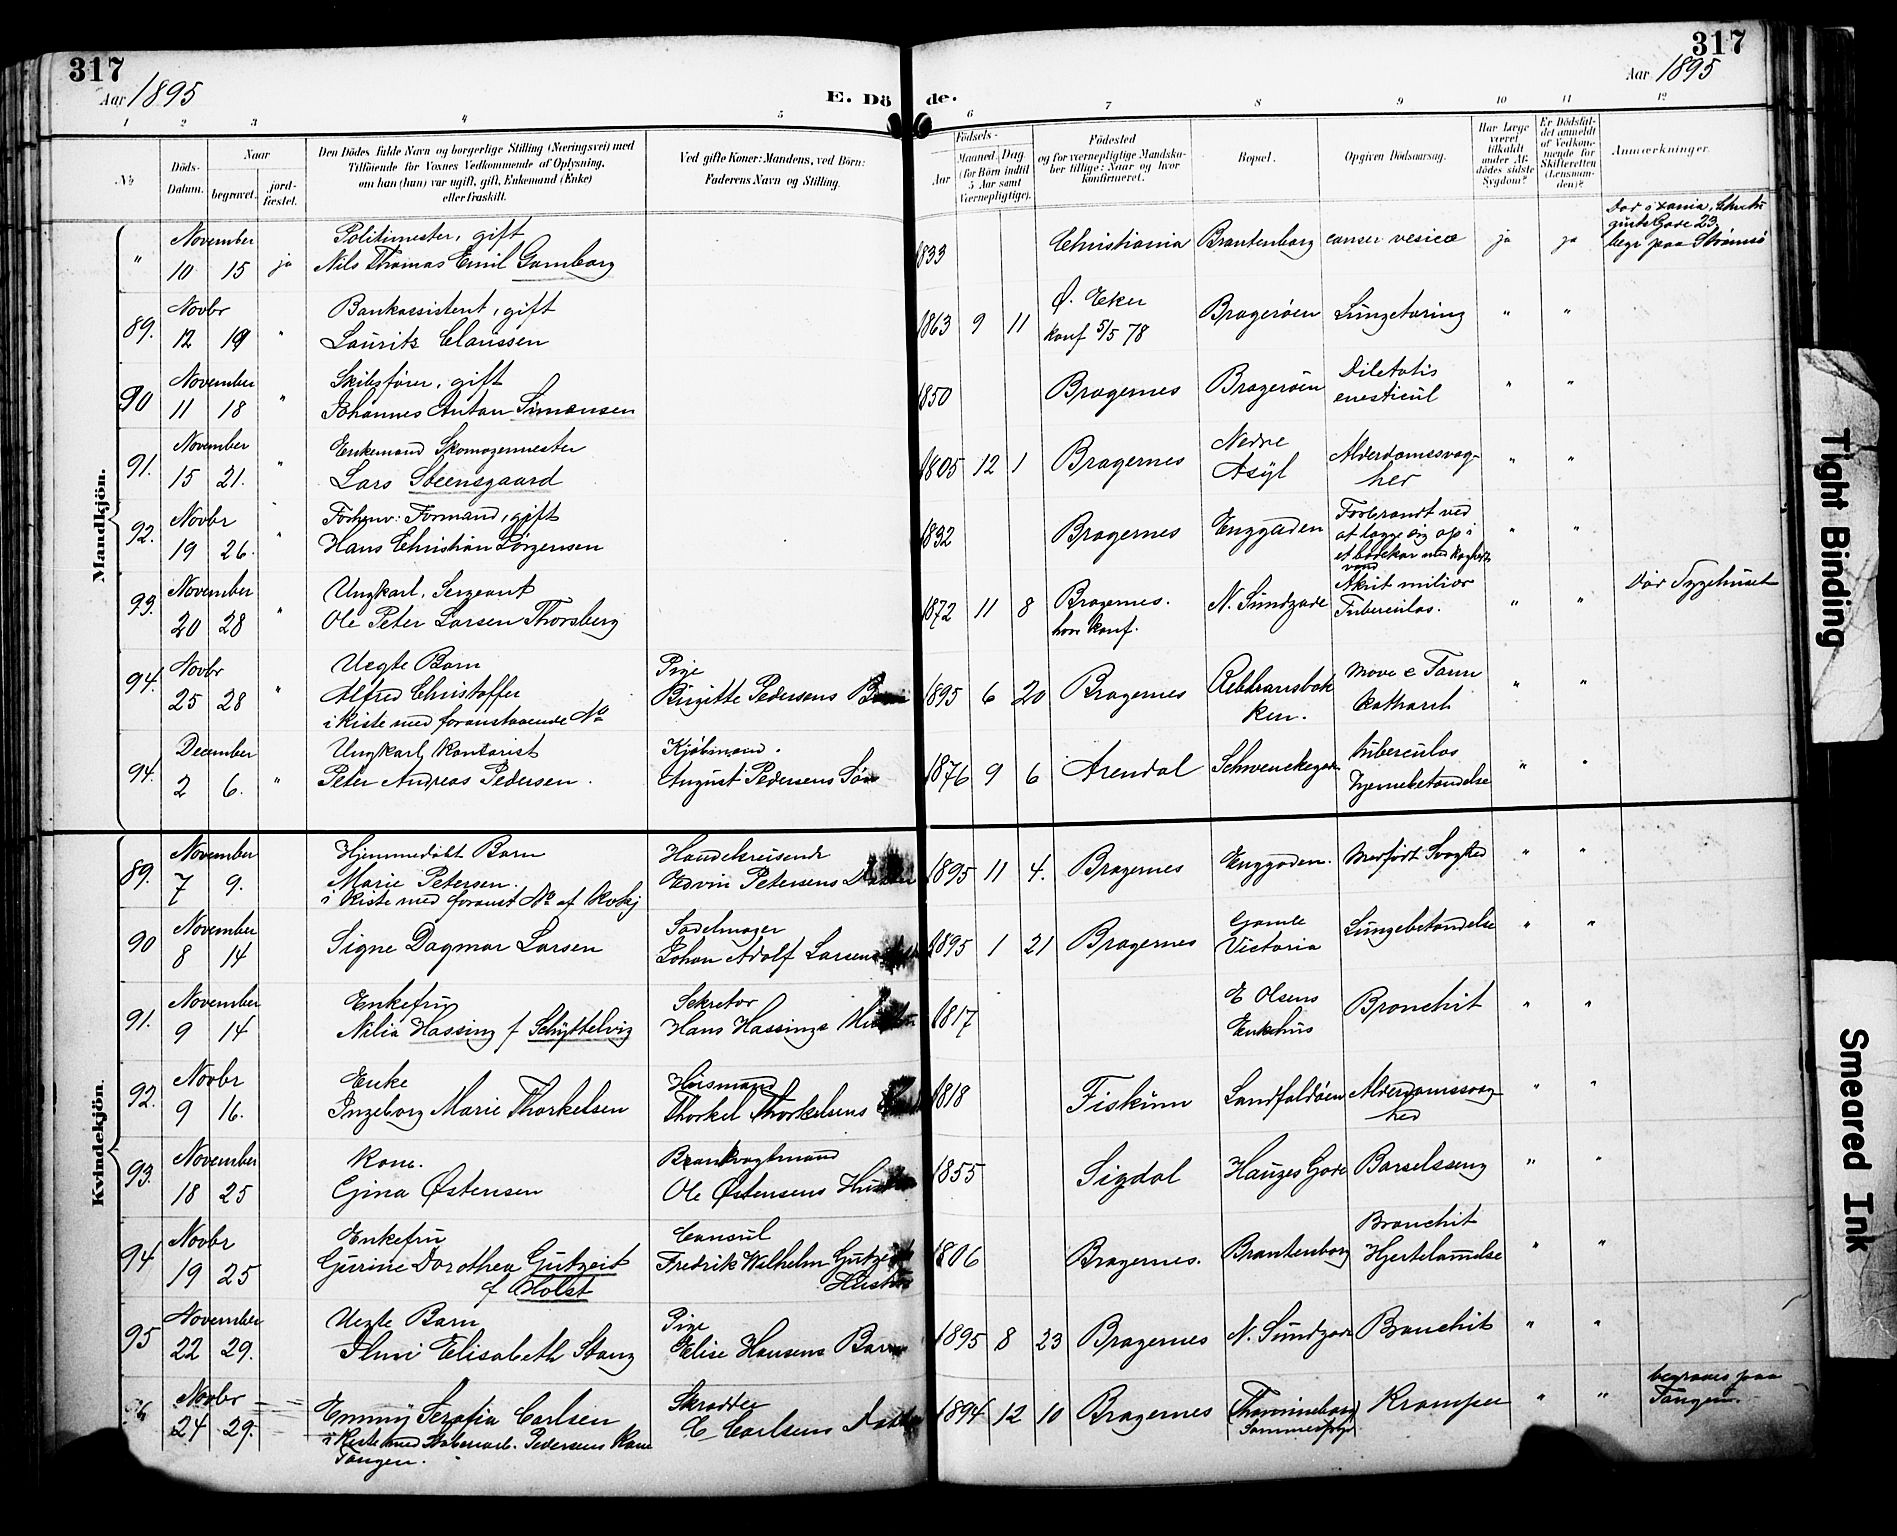 317
317
Aar 1895
Aar 1895
E. Dö de.
1 2 3 4 5 6 7 8 9 10 11 12
No
Döds-
Datum.
Naar
begravet.
jord-
fæstet.
Den Dödes fulde Navn og borgerlige Stilling (Næringsvei) med
Tilföiende for Voxnes Vedkommende af Oplysning,
om han (hun) var ugift, gift, Enkemand (Enke)
eller fraskilt.
Ved gifte Koner: Mandens, ved Börn:
Faderens Navn og Stilling.
Födsels-
Aar
Maaned. Dag.
(for Börn indtil
5 Aar samt
Værnepligtige).
Födested
og for værnepligtige Mandska-
ber tillige: Naar og hvor
konfirmeret.
Bopæl.
Opgiven Dödsaarsag.
Har Læge
været
tilkaldt
under Af-
dödes sidste
Sygdom?
Er Dödsfal-
det anmeldt
af Vedkom-
mende for
Skifteretten
(Lensman-
den)?
Anmærkninger.
Mandkjön.
" November 10 15 ja
Politimester, gift
Nils Thomas Emil Gamborg
1833 Christiania Brantenborg cancer vesicæ ja ja
Gade 23
begr paa Strømsø
89. Novbr 12 19 "
Bankassistent, gift
Laurits Claussen
1863 9 11 Ø. Eker
konf 5/5 78
Bragerøen Lungetæring " "
90 November 11 18 "
Skibsfører, gift
Johannes Anton Simonsen
1850 Bragernes Bragerøen " "
91. November 15 21. "
Enkemand Skomagermester
Lars Steensgaard
1805 12 1 Bragernes Nedre
Asyl
Alderdomssvag-
hed " "
92. Novbr 19 26. "
Formand, gift
Hans Christian Jørgensen
1832 Bragernes Enggaden
Forbrændt ved
at lægge sig op i
et badekar med koghedt
vand " "
93. November 20 28 "
Ungkarl, Sergeant
Ole Peter Larsen Thorsberg
1872 11 8 Bragernes.
her konf.
N. Sundgade
Akut miliær
Tuberculos. " "
Dør Sygehuset
94. Novbr 25 28 "
Uegte Barn
Alfred Christoffer
i kiste med foranstaaende No
Pige
Birgitte Pedersens Barn
1895 6 20 Bragernes
Mave & Tarm
Katharrh " "
94. December 2 6. "
Ungkarl, Kontorist
Peter Andreas Pedersen.
Kjøbmand.
August Pedersens Søn
1876 9 6 Arendal Schwenckegade
tuberculøs
Hjernebetændelse " "
Kvindekjön.
89. November 7 9.
Hjemmedøbt Barn
Marie Petersen.
i kiste med foranst No af Mandkj
Handelsreisende
Edvin Petersens Datter
1895 11 4. Bragernes Enggaden. Medført Svaghed " "
90 November 8 14
Signe Dagmar Larsen
Sadelmager
Johan Adolf Larsens
1895 1 21 Bragernes Gamle
Victoria
Lungebetændelse " "
91. November 9 14
Enkefru
Nilia Hassing f Schyttelvig
Sekretær
Hans Hassings Hustru
1817 E Olsens
Enkehus
Bronchit " "
92. Novbr 9 16.
Enke
Ingeborg Marie Thorkelsen
Husmand
Thorkel Thorkelsens
1818 Fiskum Landfaldøen Alderdomssvag-
hed " "
93. November 18 25
Kone.
Gina Østensen
Brankvagtmand
Ole Østensens Hustru
1855 Sigdal Hauges Gade Barselsseng " "
94 Novbr 19 25
Enkefru
Gurine Dorothea Gutzeit
f Holst
Consul
Fredrik Wilhelm Gutzeit
Hustru
1806 Bragernes. Brantenborg
Bronchit
Hjertelamelse " "
95 November 22 29.
Uegte Barn
Elisabeth Stang
Pige
Elise Hansens Barn
1895 8 23 Bragernes N. Sundgade Bronchit " "
96 Novbr 24 29.
Emmy Serafia Carlsen
i kiste med Pedersens Kone
Tangen.
Skrædder
C. Carlsens Datter
1894 12 10 Bragernes Krampe " "
begraves paa
Tangen.
Tight Binding
Smeared Ink